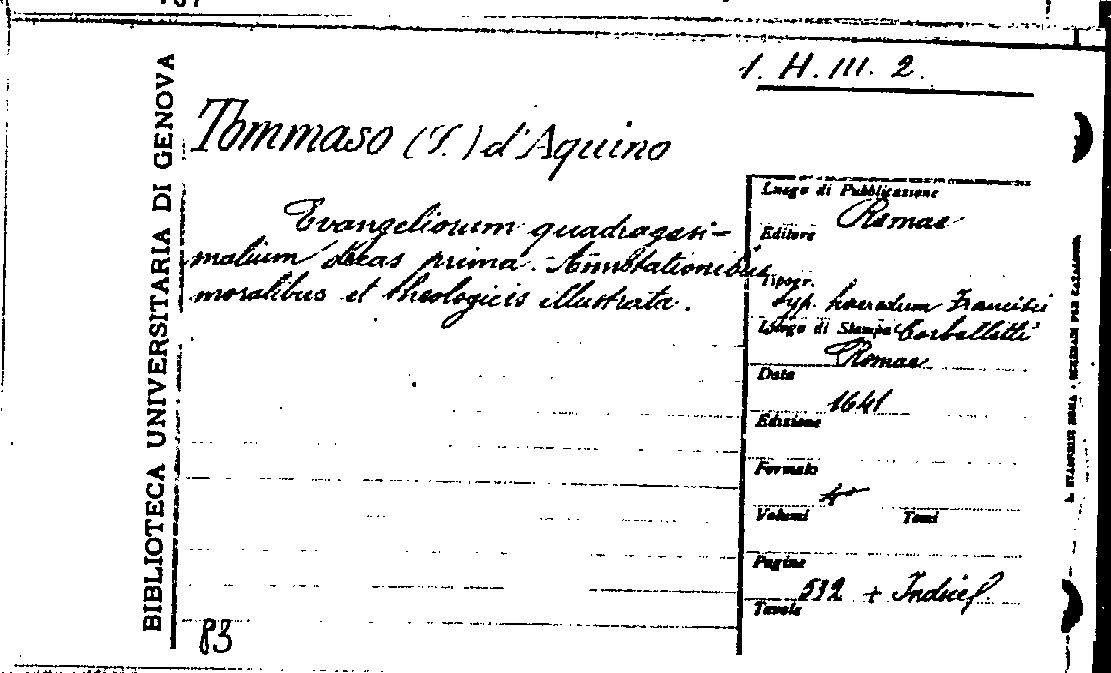 1. H. III. 2.
BIBLIOTECA UNIVERSITARIA DI GENOVA
Tommaso (S.) d'Aquino
Evangeliorum quadragesi-
malium decas prima. Annotationibus
moralibus et theologicis illustrata.
Luogo di Pubblicazione
Romae
Editore
Tipogr.
Typ. haeredum Francisci
Corbelletti
Luogo di Stampa
Romae
Data
1641
Edizione
Formato
4°
Volumi Tomi
Pagine
532 + Indici
Tavole
83